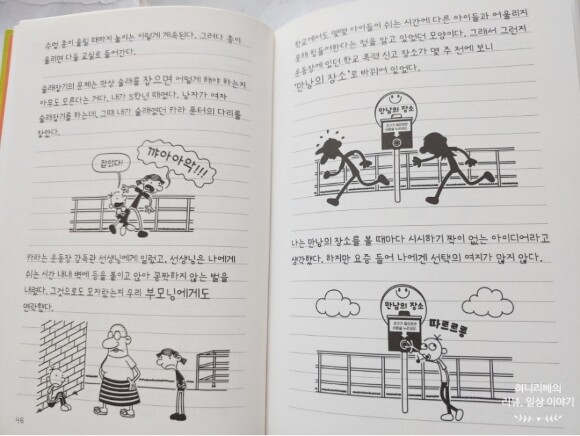 수업 종이 울릴 때까지 놀이는 이렇게 계속된다. 그러다 종이
울리면 다들 교실로 들어간다.
술래잡기의 문제는 막상 술래를 잡으면 어떻게 해야 하는지
아무도 모른다는 거다. 내가 5학년 때였다. 남자가 여자
술래잡기를 하는데, 그때 내가 술래였던 카라 푼터의 다리를
잡았다.
잡았다!
꺄아아악!!!
카라는 운동장 감독관 선생님에게 일렀고, 선생님은 나에게
쉬는 시간 내내 벽에 등을 붙이고 앉아 꼼짝하지 않는 벌을
내렸다. 그것으로도 모자랐는지 우리 부모님에게도
연락했다.
48
학교에서도 몇몇 아이들이 쉬는 시간에 다른 아이들과 어울리지
못해 힘들어한다는 점을 알고 있었던 모양이다. 그래서 그런지
운동장에 있던 학교 폭력 신고 장소가 몇 주 전에 보니
'만남의 장소'로 바뀌어 있었다.
만남의 장소
나는 만남의 장소를 볼 때마다 시시하기 짝이 없는 아이디어라고
생각했다. 하지만 요즘 들어 나에겐 선택의 여지가 많지 않다.
만남의 장소
따르르릉
허니리베의
리뷰, 일상 이야기